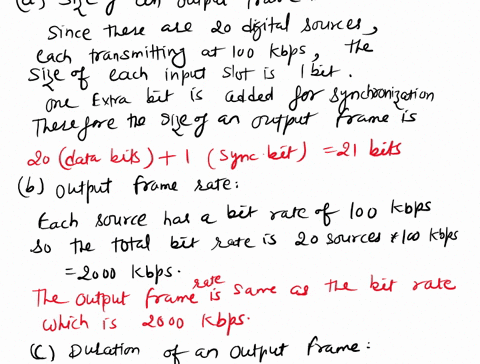 (a) Size of an output frame
Since there are 20 digital sources,
each transmitting at 100 kbps, the
size of each input slot is 1 bit.
one Extra bit is added for synchronization
Therefore the size of an output frame is
20 (data bits) + 1 (sync bit) = 21 bits
(b) output frame rate:
Each source has a bit rate of 100 kbps
so the total bit rate is 20 sources * 100 kbps
= 2000 kbps.
The output frame rate is same as the bit rate
which is 2000 kbps.
(C) Duration of an output frame: